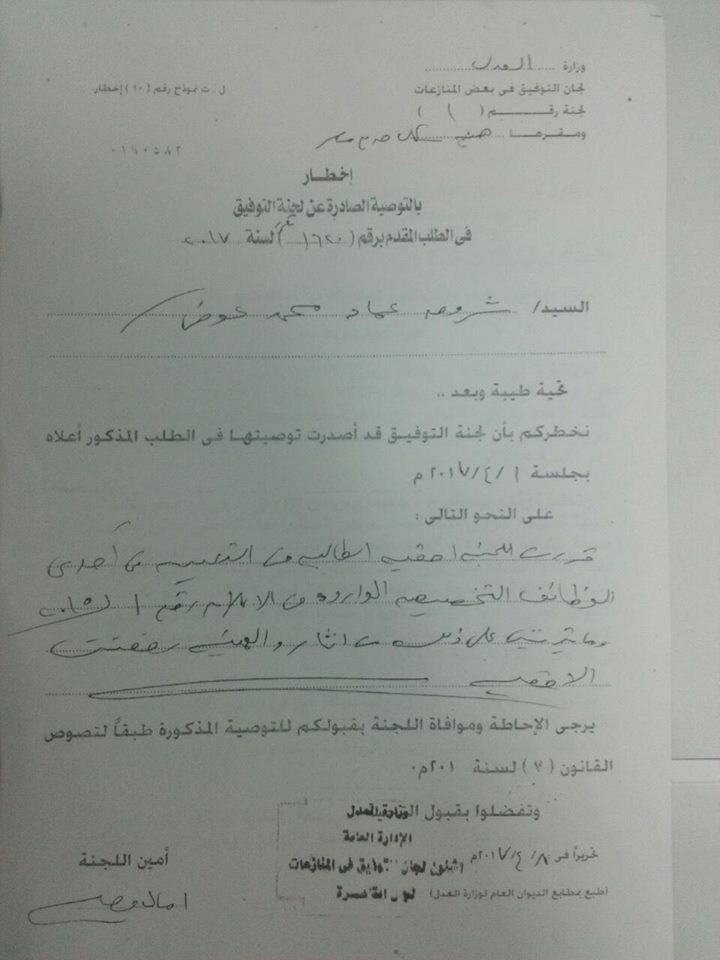 وزارة العدل
لجان التوفيق فى بعض المنازعات
ل . ت نموذج رقم (١٠) إخطار
لجنة رقم ( ١ )
ومقرها
٠١٩٠٥٨٢
إخطار
بالتوصية الصادرة عن لجنة التوفيق
فى الطلب المقدم برقم ( ١٦٢٠ ) لسنة ٢٠١٧
السيد/ شروق عماد محمد عوض
تحية طيبة وبعد ..
نخطركم بأن لجنة التوفيق قد أصدرت توصيتها فى الطلب المذكور أعلاه
بجلسة ١ / ٤ / ٢٠١٧ م
على النحو التالى :
قررت اللجنة احقية الطالبه فى التعيين فى أحدى
الوظائف التخصصيه الوارده فى الاعلان رقم ١ لـ
وما يترتب على ذلك من اثار والجهة رفضت
يرجى الإحاطة وموافاة اللجنة بقبولكم للتوصية المذكورة طبقاً لنصوص
القانون (٧) لسنة ٢٠١م٠
وتفضلوا بقبول
وزارة العدل
الإدارة العامة
لشئون لجان التوفيق فى المنازعات
تحريراً فى ٨ / ٤ / ٢٠١٧م
أمين اللجنة
(طبع بمطابع الديوان العام لوزارة العدل)